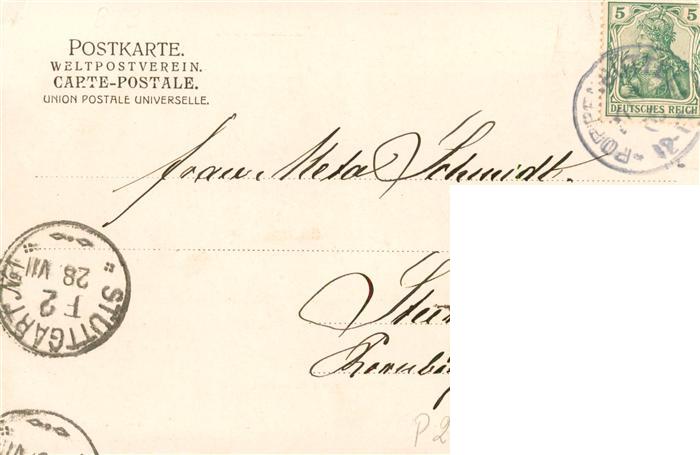 POSTKARTE.
WELTPOSTVEREIN.
CARTE-POSTALE.
UNION POSTALE UNIVERSELLE.
5 5
DEUTSCHES REICH
Frau Meta Schmidt.
STUTTGART No 1
F 2
28 VII
P. 2